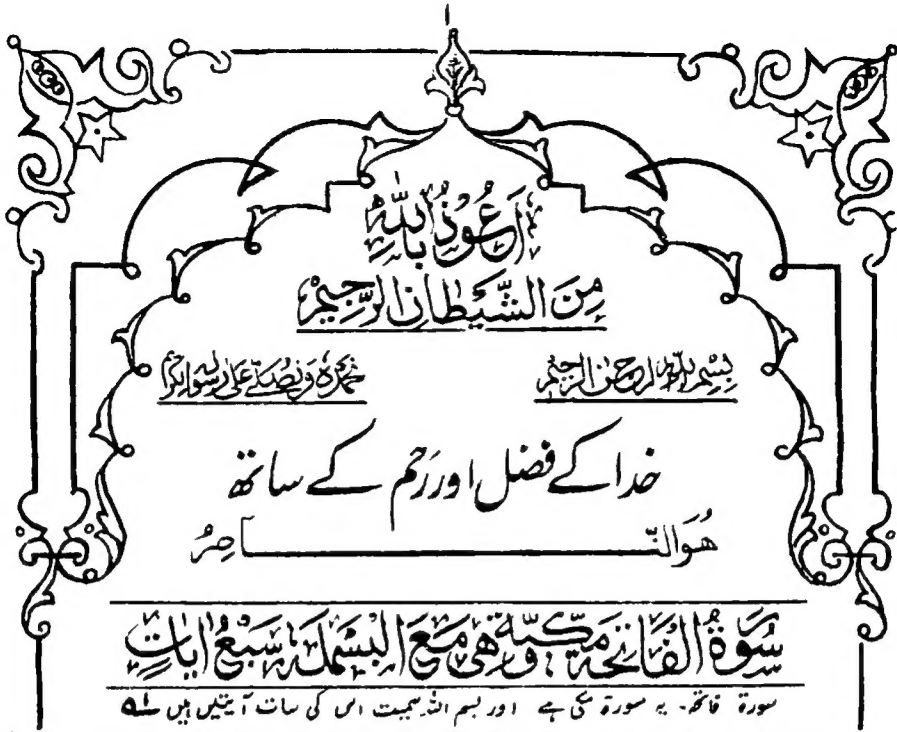 ا
اَعُوْذُ بِاللّٰهِ
مِنَ الشَّيْطَانِ الرَّجِيْمِ
بِسْمِ اللّٰهِ الرَّحْمٰنِ الرَّحِيْمِ نَحْمَدُهٗ وَنُصَلِّيْ عَلٰى رَسُوْلِهِ الْكَرِيْمِ
خدا کے فضل اور رَحم کے ساتھ
هُوَ النَّــــــــاصِرُ
سُوْرَةُ الْفَاتِحَةِ مَكِّيَّةٌ، وَهِيَ مَعَ الْبَسْمَلَةِ سَبْعُ اٰيَاتٍ
سورۃ فاتحہ۔ یہ سورۃ مکی ہے اور بسم اللہ سمیت اس کی سات آیتیں ہیں